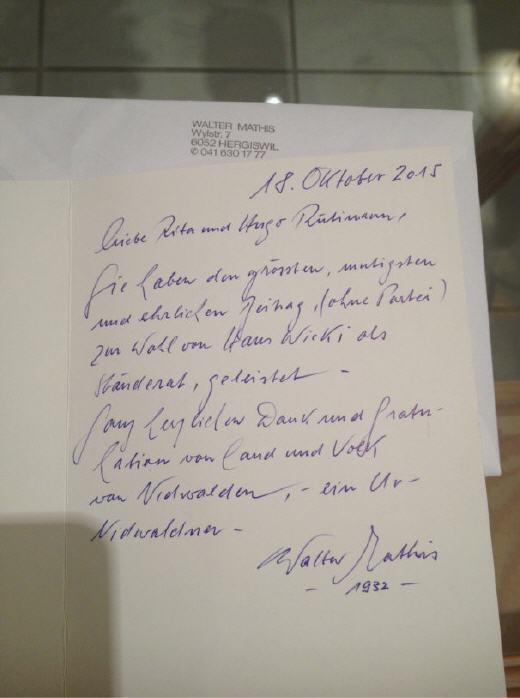 WALTER MATHIS
Wylstr. 7
6052 HERGISWIL
✆ 041 630 17 77
18. Oktober 2015
Liebe Rita und Hugo Rütimann,
Sie haben den grössten, mutigsten
und ehrlichen Beitrag, (ohne Partei)
zur Wahl von Hans Wicki als
Ständerat, geleistet –
Ganz herzlichen Dank und Gratu-
lation von Land und Volk
von Nidwalden, – ein Ur-
Nidwaldner –
Walter Mathis
– 1932 –